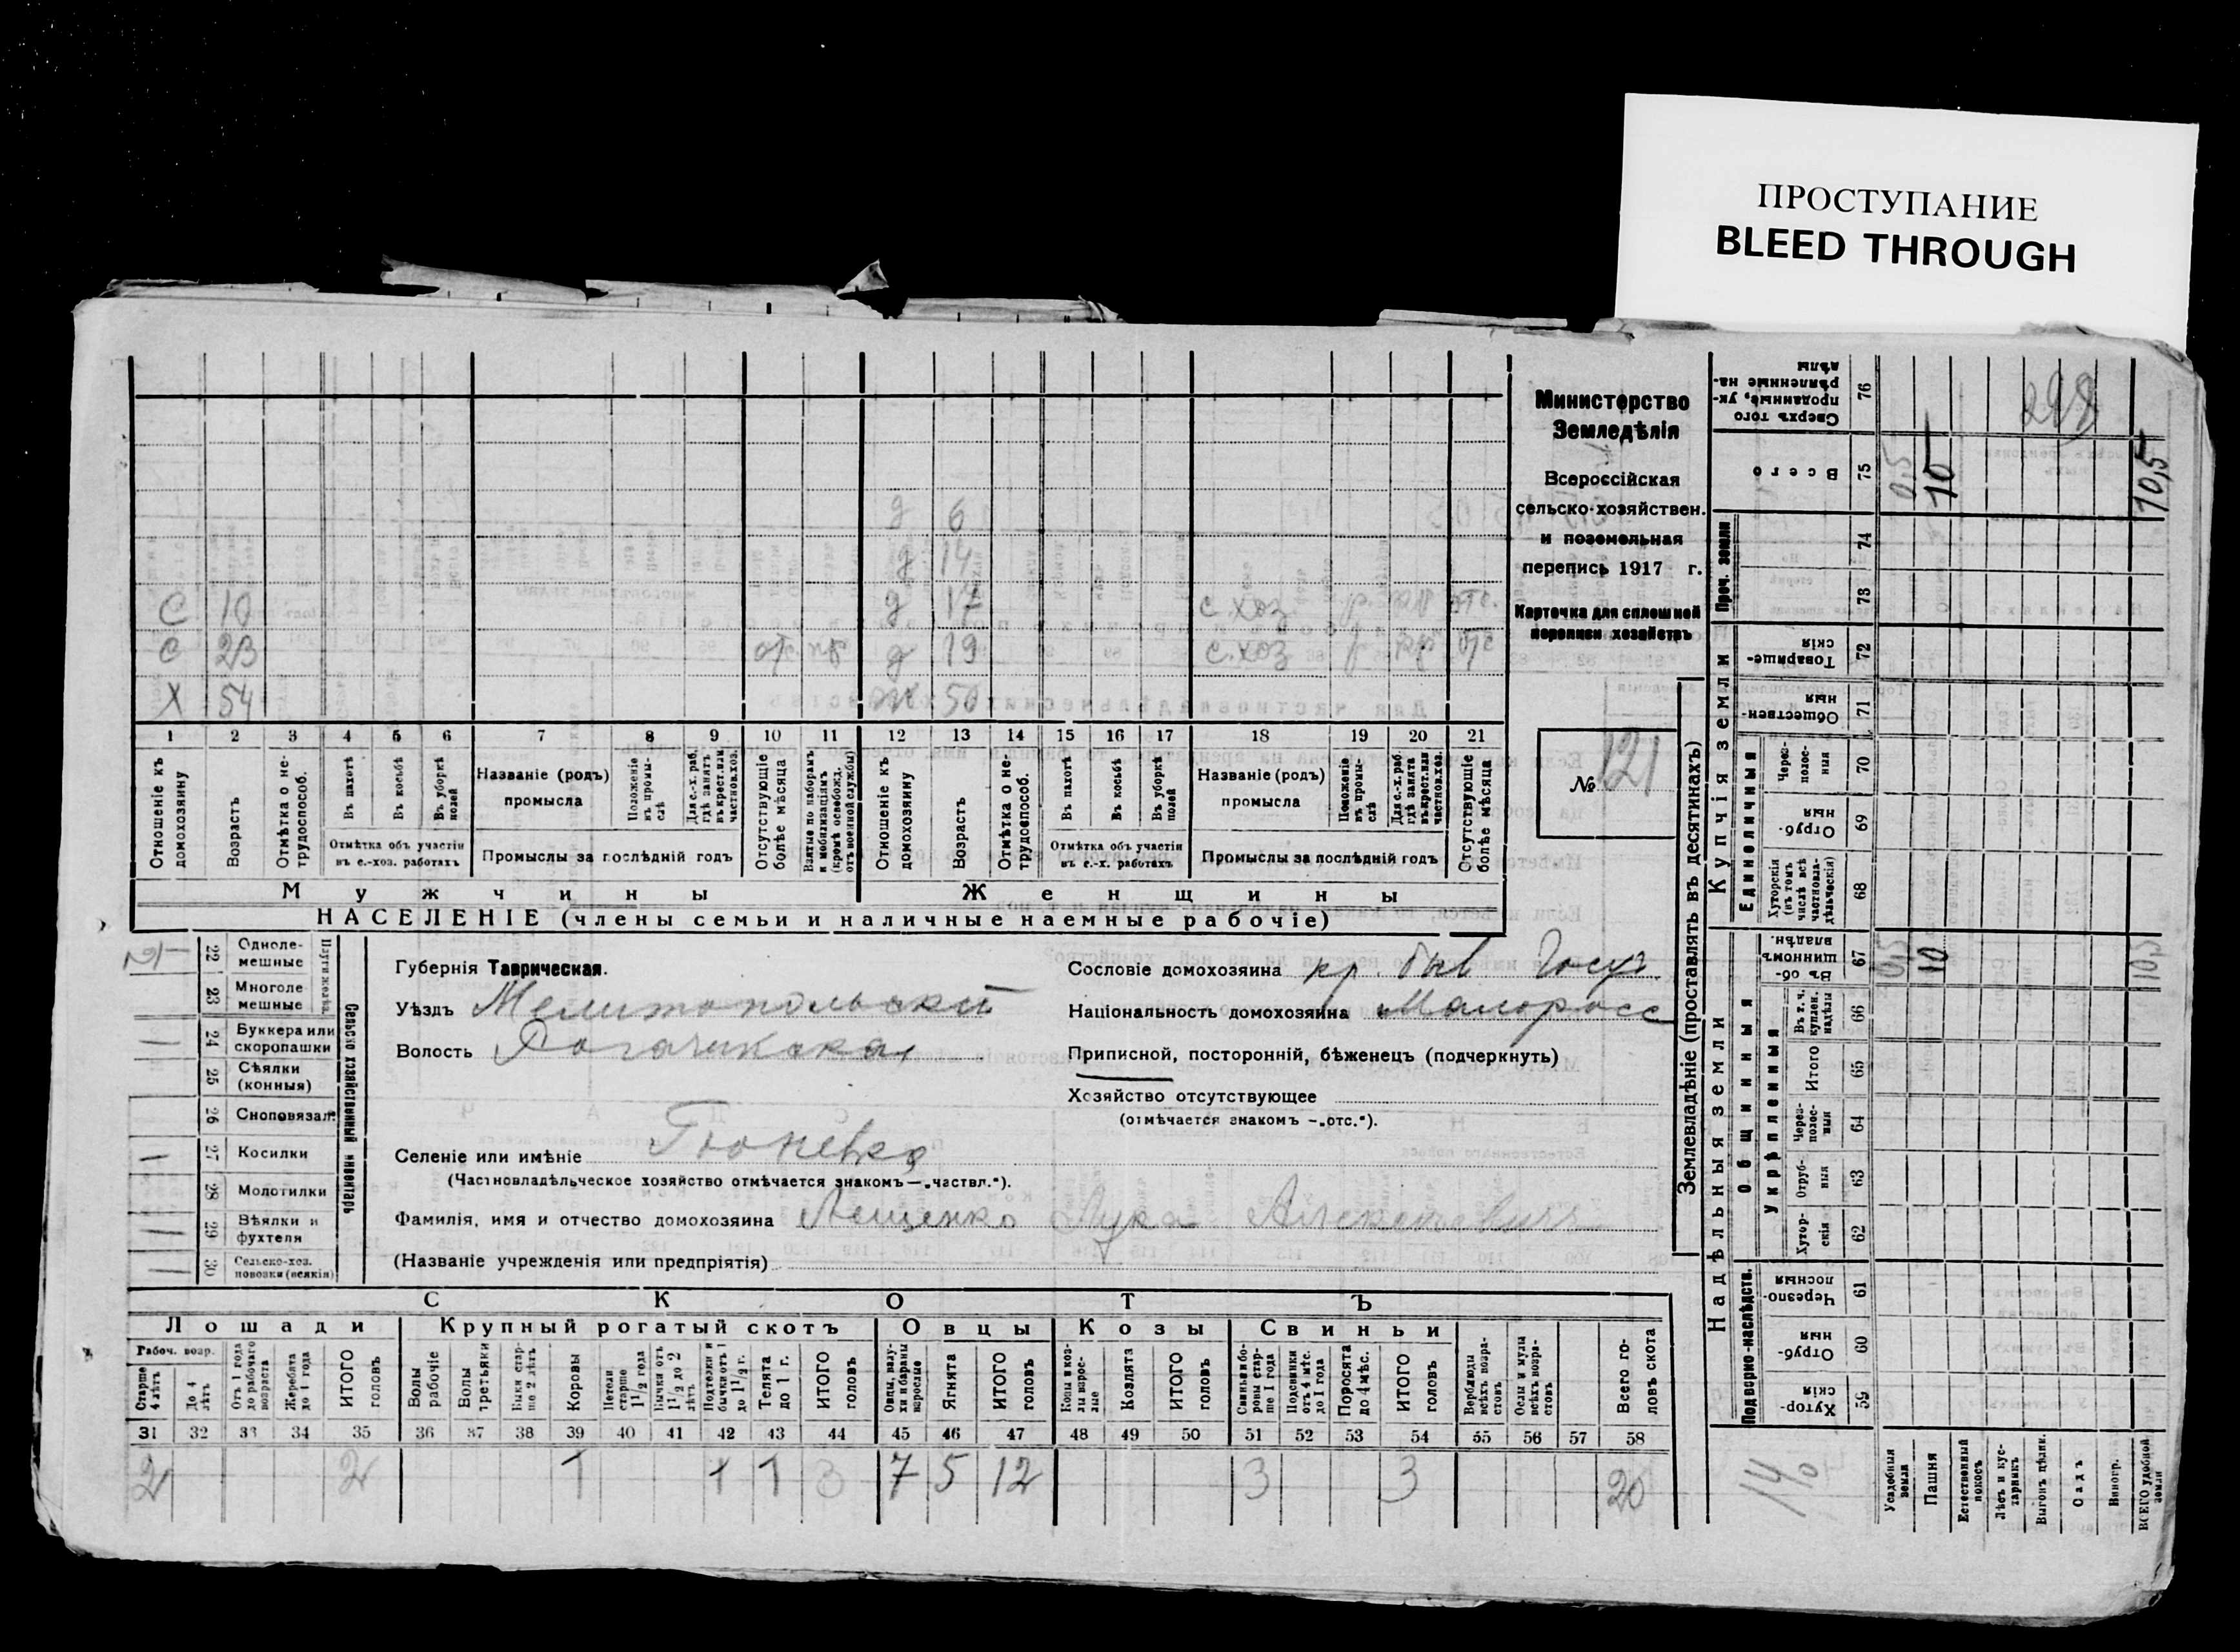 ПРОСТУПАНИЕ
BLEED THROUGH
д 6
д 14
С 10 д 17 с хоз р. отс.
С 23 отс. д 19 с.хоз р отс
Х 54 ж 50
1 2 3 4 5 6 7 8 9 10 11 12 13 14 15 16 17 18 19 20 21
Отношеніе къ домохозяину
Возрастъ
Отмѣтка о не-трудоспособ.
Въ пахотѣ
Въ косьбѣ
Въ уборкѣ полей
Отмѣтка объ участіи въ с.-хоз. работахъ
Названіе (родъ) промысла
Положеніе въ промы-слѣ
Для с.-х. раб. гдѣ занятъ въ крест. или частнов. хоз.
Промыслы за послѣдній годъ
Отсутствующіе болѣе мѣсяца
Взятые по наборамъ и мобилизаціямъ (кромѣ освобожд. отъ военной службы)
Отношеніе къ домохозяину
Возрастъ
Отмѣтка о не-трудоспособ.
Въ пахотѣ
Въ косьбѣ
Въ уборкѣ полей
Отмѣтка объ участіи въ с.-х. работахъ
Названіе (родъ) промысла
Положеніе въ промы-слѣ
Для с.-х. раб. гдѣ занята въ крест. или частнов. хоз.
Промыслы за послѣдній годъ
Отсутствующіе болѣе мѣсяца
Мужчины Женщины
НАСЕЛЕНІЕ (члены семьи и наличные наемные рабочіе)
Министерство
Земледѣлія
Всероссійская
сельско-хозяйствен.
и поземельная
перепись 1917 г.
Карточка для сплошной
переписи хозяйствъ
№ 121
22 Одноле-мешные
23 Многоле мешные
24 Буккера или скоропашки
25 Сѣялки (конныя)
26 Сноповязал.
27 Косилки
28 Молотилки
29 Вѣялки и фухтеля
30 Сельско-хоз. повозки (всякія)
Сельско хозяйственный инвентарь
Губернія Таврическая.
Уѣздъ Мелитопольскій
Волость Рогачикская
Селеніе или имѣніе
(Частновладѣльческое хозяйство отмѣчается знакомъ — „частвл.“).
Фамилія, имя и отчество домохозяина Лещенко Лука Алексѣевичъ
(Названіе учрежденія или предпріятія)
Сословіе домохозяина кр. быв Госуд
Національность домохозяина Малоросс
Приписной, посторонній, бѣженецъ (подчеркнуть)
Хозяйство отсутствующее
(отмѣчается знакомъ – „отс.“).
СКОТЪ
Лошади Крупный рогатый скотъ Овцы Козы Свиньи
Рабоч. возр.
Старше 4 лѣтъ
До 4 лѣтъ
Отъ 1 года до рабочаго возраста
Жеребята до 1 года
ИТОГО головъ
Волы рабочіе
Волы третьяки
Быки стар-ше 2 лѣтъ
Коровы
Нетели старше 1 1/2 года
Бычки отъ 1 1/2 до 2 лѣтъ
Подтелки и бычки отъ 1 до 1 1/2 г.
Телята до 1 г.
ИТОГО головъ
Овцы, валу-хи и бараны взрослые
Ягнята
ИТОГО головъ
Козы и коз-лы взрос-лые
Козлята
ИТОГО головъ
Свиньи и бо-ровы стар-ше 1 года
Подсвинки отъ 4 мѣс. до 1 года
Поросята до 4 мѣс.
ИТОГО головъ
Верблюды всѣхъ возра-стовъ
Ослы и мулы всѣхъ возра-стовъ
Всего го-ловъ скота
31 32 33 34 35 36 37 38 39 40 41 42 43 44 45 46 47 48 49 50 51 52 53 54 55 56 57 58
2 2 1 1 1 3 7 5 12 3 3 20
Землевладѣніе (проставлять въ десятинахъ)
Надѣльныя земли
Купчія земли
Проч. земли
Подворно-наслѣдств.
Общинныя
Укрѣпленныя
Единоличныя
Сверхъ того проданные, ук-рѣпленные на-дѣлы 76 298
Всего 75 0,5 10 10,5
74
73
Товарище-скія 72
Обществен-ныя 71
Через-полос-ныя 70
Отруб-ныя 69
Хуторскія (въ томъ числѣ всѣ частновла-дѣльческія) 68
Въ об-щинномъ владѣн. 67 0,5 10 10,5
Въ т. ч. куплен. надѣлы 66
Итого 65
Черезполос-ныя 64
Отруб-ныя 63
Хутор-скія 62
Черезпо-лосныя 61
Отруб-ныя 60
Хутор-скія 59
Усадебная земля
Пашня
Естественный покосъ
Лѣсъ и кус-тарникъ
Выгонъ цѣлик.
Садъ
Виногр.
ВСЕГО удобной земли